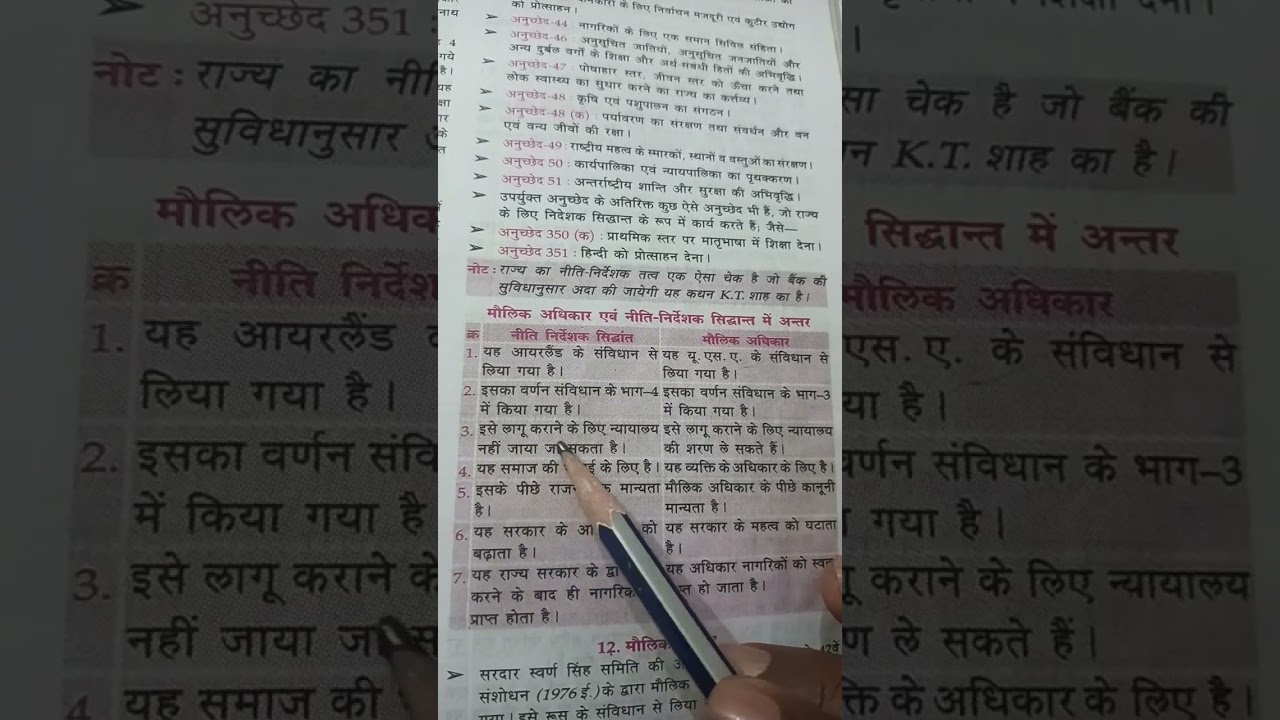 को प्रोत्साहन।
के लिए निर्वाचन मजदूरी एवं कुटीर उद्योग
➢ अनुच्छेद-44 : नागरिकों के लिए एक समान सिविल संहिता।
➢ अनुच्छेद-46 : अनुसूचित जातियों, अनुसूचित जनजातियों और
अन्य दुर्बल वर्गों के शिक्षा और अर्थ संबंधी हितों की अभिवृद्धि।
➢ अनुच्छेद-47 : पोषाहार स्तर, जीवन स्तर को ऊँचा करने तथा
लोक स्वास्थ्य का सुधार करने का राज्य का कर्त्तव्य।
➢ अनुच्छेद-48 : कृषि एवं पशुपालन का संगठन।
➢ अनुच्छेद-48 (क) : पर्यावरण का संरक्षण तथा संवर्धन और वन
एवं वन्य जीवों की रक्षा।
➢ अनुच्छेद-49 : राष्ट्रीय महत्व के स्मारकों, स्थानों व वस्तुओं का संरक्षण।
➢ अनुच्छेद 50 : कार्यपालिका एवं न्यायपालिका का पृथक्करण।
➢ अनुच्छेद 51 : अन्तर्राष्ट्रीय शान्ति और सुरक्षा की अभिवृद्धि।
➢ उपर्युक्त अनुच्छेद के अतिरिक्त कुछ ऐसे अनुच्छेद भी हैं, जो राज्य
के लिए निदेशक सिद्धान्त के रूप में कार्य करते हैं; जैसे—
➢ अनुच्छेद 350 (क) : प्राथमिक स्तर पर मातृभाषा में शिक्षा देना।
➢ अनुच्छेद 351 : हिन्दी को प्रोत्साहन देना।
नोट : राज्य का नीति-निर्देशक तत्व एक ऐसा चेक है जो बैंक की
सुविधानुसार अदा की जायेगी यह कथन K.T. शाह का है।
मौलिक अधिकार एवं नीति-निर्देशक सिद्धान्त में अन्तर
क्र नीति निर्देशक सिद्धांत मौलिक अधिकार
1. यह आयरलैंड के संविधान से यह यू. एस. ए. के संविधान से
लिया गया है। लिया गया है।
2. इसका वर्णन संविधान के भाग–4 इसका वर्णन संविधान के भाग–3
में किया गया है। में किया गया है।
3. इसे लागू कराने के लिए न्यायालय इसे लागू कराने के लिए न्यायालय
नहीं जाया जा सकता है। की शरण ले सकते हैं।
4. यह समाज की के लिए है। यह व्यक्ति के अधिकार के लिए है।
5. इसके पीछे मान्यता मौलिक अधिकार के पीछे कानूनी
है। मान्यता है।
6. यह सरकार के को यह सरकार के महत्व को घटाता
बढ़ाता है। है।
7. यह राज्य सरकार के यह अधिकार नागरिकों को
करने के बाद ही हो जाता है।
प्राप्त होता है।
12.
➢ सरदार स्वर्ण सिंह समिति की
संशोधन (1976 ई.) के द्वारा मौलिक
इसे रूस के संविधान से लिया